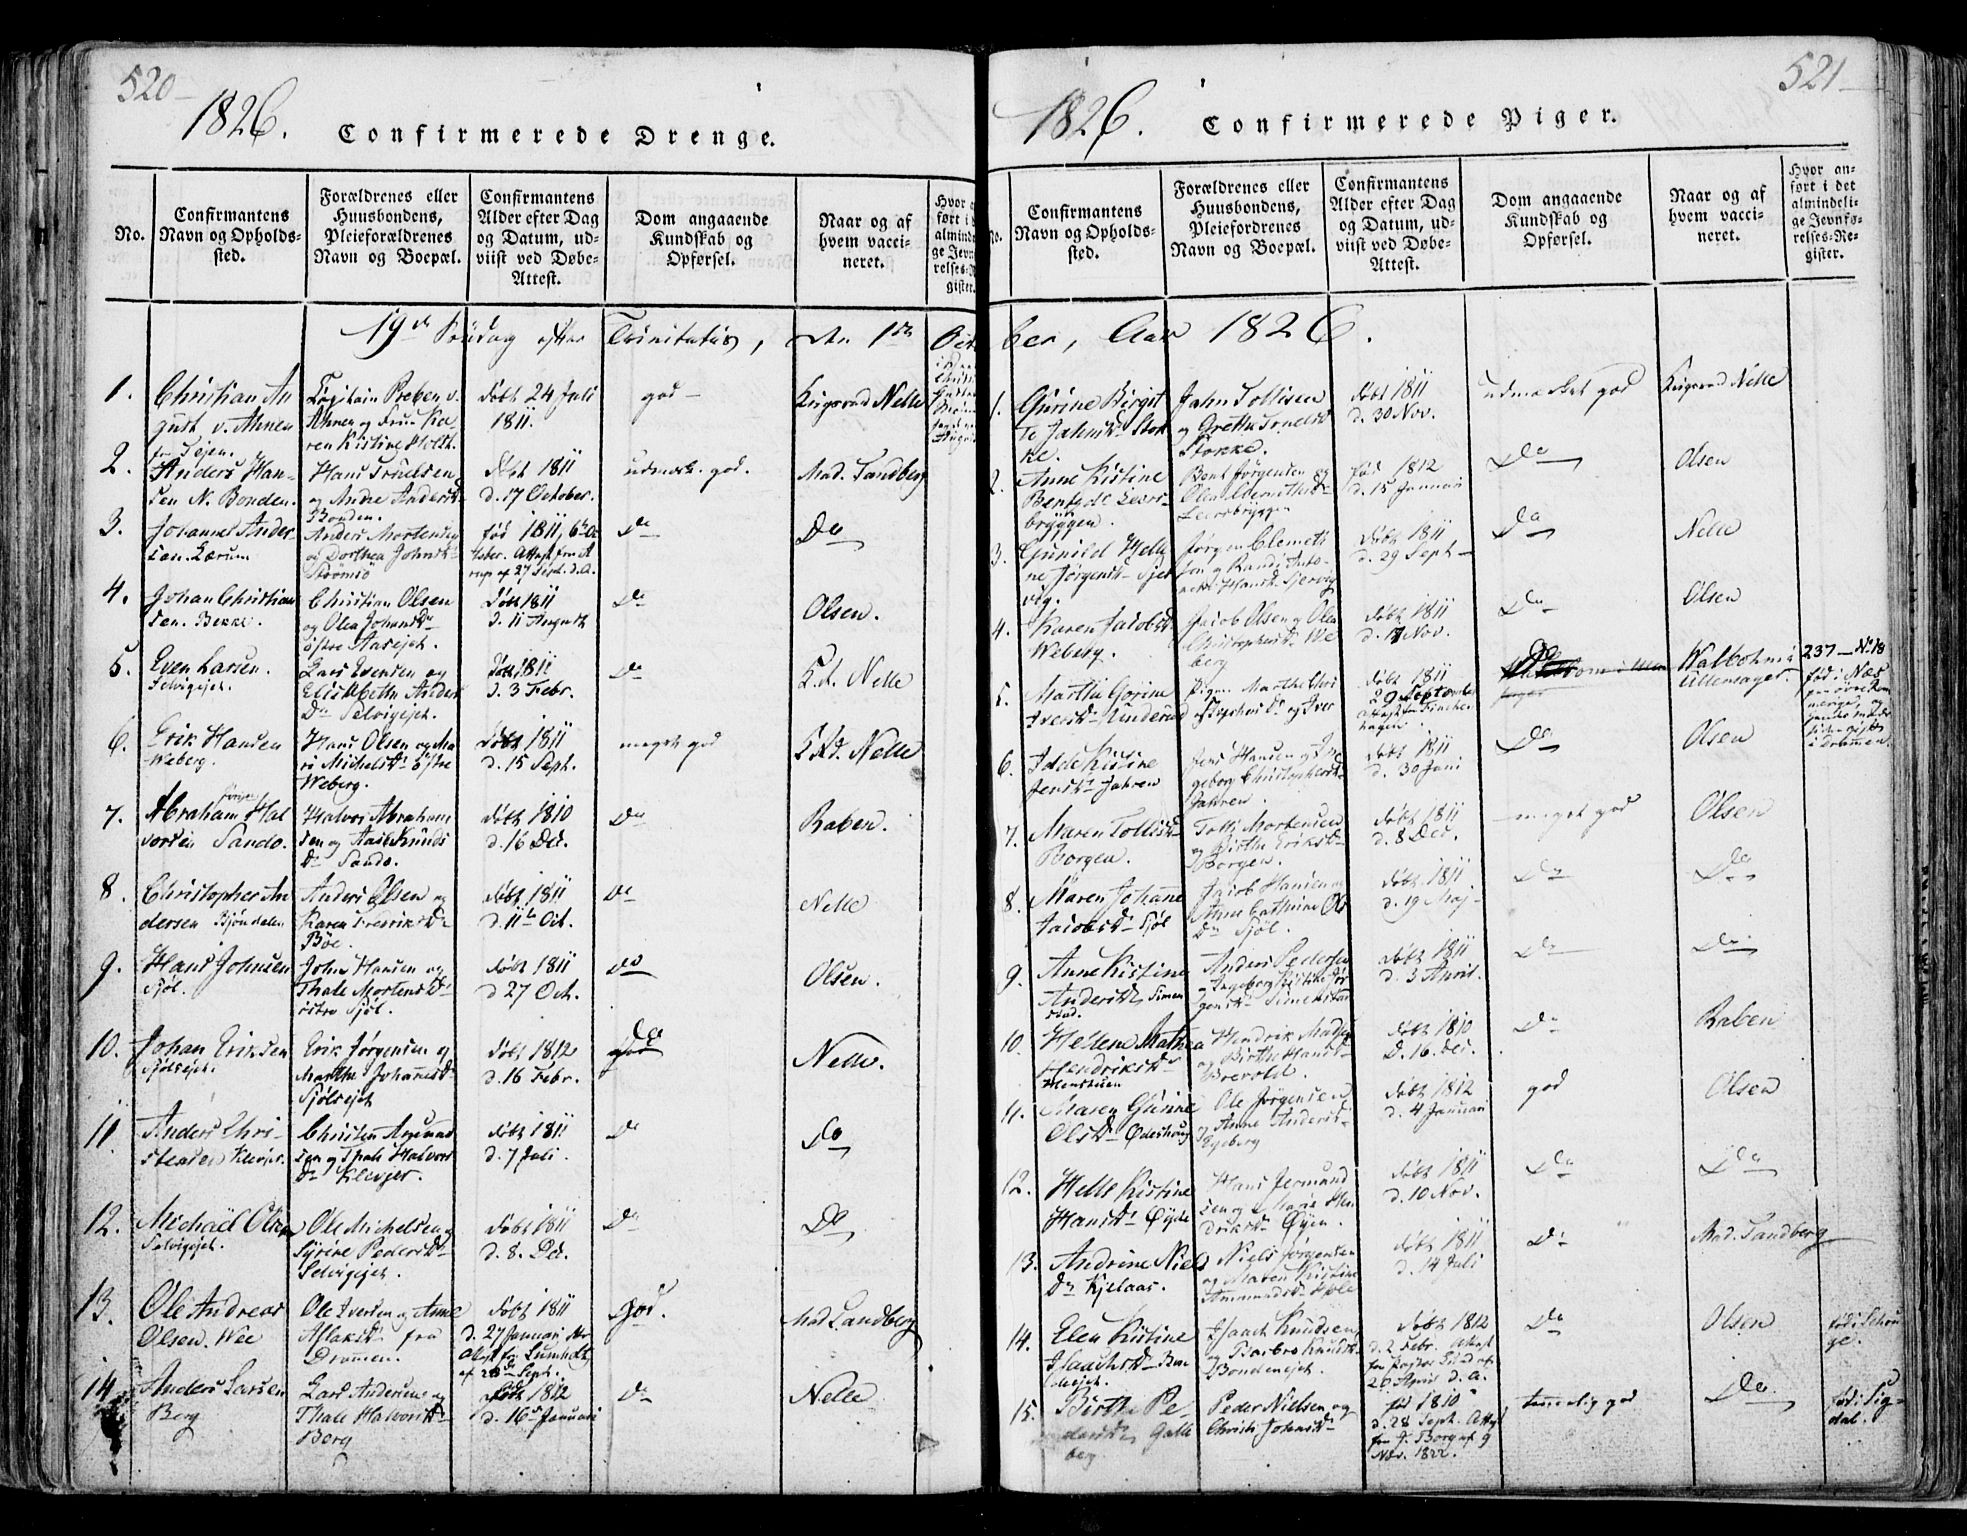 520
1826.
Confirmerede Drenge.
No.
Confirmantens
Navn og Opholds-
sted.
Forældrenes eller
Huusbondens,
Pleieforældrenes
Navn og Boepæl.
Confirmantens
Alder efter Dag
og Datum, ud-
viist ved Døbe-
Attest.
Dom angaaende
Kundskab og
Opførsel.
Naar og af
hvem vacci-
neret.
19de Søndag efter Trinitatis, den 1ste Octo
1.
Christian Au
gust v. Ahnen
Capitain Preben v.
Ahnen og Frue Ka-
ren Kistine Holth.
født 24 Juli
1811.
god
Krigsraad Nelle
2.
Anders Han-
sen N. Bonden.
Hans Truelsen
og Andre Andersd
Bonden.
født 1811
d. 17 October.
udmærk. god.
Mad. Sandberg
3.
Johannes Ander
sen. Lærum
Anders Mortensen
og Dorthea Johnsd
Strömsö
født 1811, 6te Oc
tober. Attest fra
af 27 Sept. d. A.
Do
Do
4.
Johan Christian
sen. Bekke.
Christian Olsen
og Olea Johansdr
østre Aasejet.
født 1811
d. 11 August
Do
Olsen.
5.
Even Larsen.
Selvigejet.
Lars Evensen og
Elisabeth Anders
Dr Selvigejet.
født 1811.
d. 3 Febr.
Do
K.d. Nelle
6.
Erik Hansen
Weberg.
Hans Olsen og Ma
ri Michelsdr østre
Weberg.
født 1811
d. 15 Sept.
meget god
Nelle
7.
Abraham Hal
vorsen Sando.
Halvor Abraham
sen og Aase Knuds
Dr Sando.
født 1810
d. 16 Dec.
Do
Raben.
8.
Christopher An
dersen Bjöndalen
Anders Olsen og
Karen FredriksDr
Böe.
født 1811
d. 11te Oct.
Do
Nelle
9.
Hans Johnsen
Sjöl.
John Hansen og
Thale MortensDr
østre Sjöl.
født 1811
d 27 Oct.
Do
Olsen.
10.
Johan Eriksen
Sjölsejet.
Erik Jørgensen og
Marthe JohannesDr
Sjölsejet
født 1812
d. 16 Febr.
Do
Nelle.
11.
Anders Chri-
stensen Klevjer.
Christen Amund
sen og Thale Halvors
Dr Klevjer.
født 1811
d. 7 Juli.
Do
Do
12.
Michael Olsen
Selvigejet.
Ole Michelsen og
Syrine PedersDr
Selvigejet.
født 1811
d. 8. Dec.
Do
Do
13.
Ole Andreas
Olsen. Wee
Ole Iversen og Anne
Aslaksd fra
Drammen.
født 1811
d. 27 Januari
Attest fra Lumholtz
af 28de Sept.
god.
Mad Sandberg
14.
Anders Larsen
Berg
Lars Andersen og
Thale HalvorsDr
Berg
født 1812
d. 16 Januari
Do
Nelle
521
1826.
Confirmerede Piger.
No.
Confirmantens
Navn og Opholds-
sted.
Forældrenes eller
Huusbondens,
Pleiefordrenes
Navn og Boepæl.
Confirmantens
Alder efter Dag
og Datum, ud-
viist ved Døbe-
Attest.
Dom angaaende
Kundskab og
Opførsel.
Naar og af
hvem vacci-
neret.
Hvor an-
ført i det
almindeli-
ge Jevnfø-
relses-Re-
gister.
ber, Aar 1826.
1.
Gurine Birgit
te Jahnsdr Stok
ke.
Jahn Tollisen
og Grethe Truelsd
Stokke.
født 1811
d. 30 Nov.
udmærket god
Krigsraad Nelle
2.
Anne Kistine
Bentsdr Leers-
bryggen.
Bent Jørgensen og
Leersbryggen
født 1812
d. 15 Januari
Do
Olsen
3.
Gunild Hele
ne Jørgensdr Sjer
vig.
Jørgen Clemets
sen og Randi
Hansdr Sjervig
født 1811
d. 29 Sept
Do
Nelle
4.
Karen Jacobsd
Weberg.
Jacob Olsen og Olea
Christophersdr We
berg
født 1811
d. 17 Nov.
Do
Olsen
5.
Martha Gorine
Iversdr Kinderud
Pigen Marthe Chri
stophersdr og Iver
født 1811
29 September
Do
Ullensager.
237 – No 18
født i Næs
i Drammen.
6.
Idde Kistine
Jensdr Jahren
Jens Hansen og In
geborg Christophersd
Jahren.
født 1811
d. 30 Juni
Do
Olsen
7.
Maren Tollisdr
Borgen.
Tolli Mortensen
og Birthe Eriksdr
Borgen.
født 1811
d. 8 Dec.
meget god
Olsen
8.
Maren Johanne
Jacobsdr Sjöl
Jacob Hansen og
Anne Cathrine Ols
Dr Sjöl.
født 1811
d. 19 Maj
Do
Do
9.
Anne Kistine
Andersdr Simen
stad.
Anders Pedersen
og Ingeborg Kistine Jør
gensdr Simenstad
født 1811
d. 3 April.
Do
Do
10.
Hellene Mathea
Hendriksdr
Hendrik Madsen
og Birthe Hansdr
Brevold.
født 1810
d. 16. Dec.
Do
Raben
11.
Maren Gurine
Olsdr Ødeshaug
Ole Jörgensen
og Anne Andersdr
Egeberg
født 1812
d. 4 Januari
god
Olsen
12.
Helle Kistine
Hansdr Öyde
Hans Jermund
sen og Marie Hen
driksdr Öyen.
født 1811
d. 10 Nov.
Do
Do
13.
Andrine Niels
Dr Kjelaas.
Niels Jørgensen
og Maren Kistine
Ammundsdr Hole
født 1811
d. 14 Juli
Do
Mad. Sandberg
14.
Elen Kistine
Isaachsdr Bon
dejet.
Isaach Knudsen
og Barbro Knudsdr
Bondenejet.
født 1812
d. 2 Febr. Attest
fra Pastor Lund af
26 April d. A.
Do
Olsen
født i Skou
ge.
15.
Birthe Pe-
dersdr Galle
berg
Peder Nielsen og
Christi Johnsdr
født 1810
d. 28 Sept. Attest
fra P. Borg af 9
Nov. 1822.
temmelig god
Do
født i Sig-
dal.